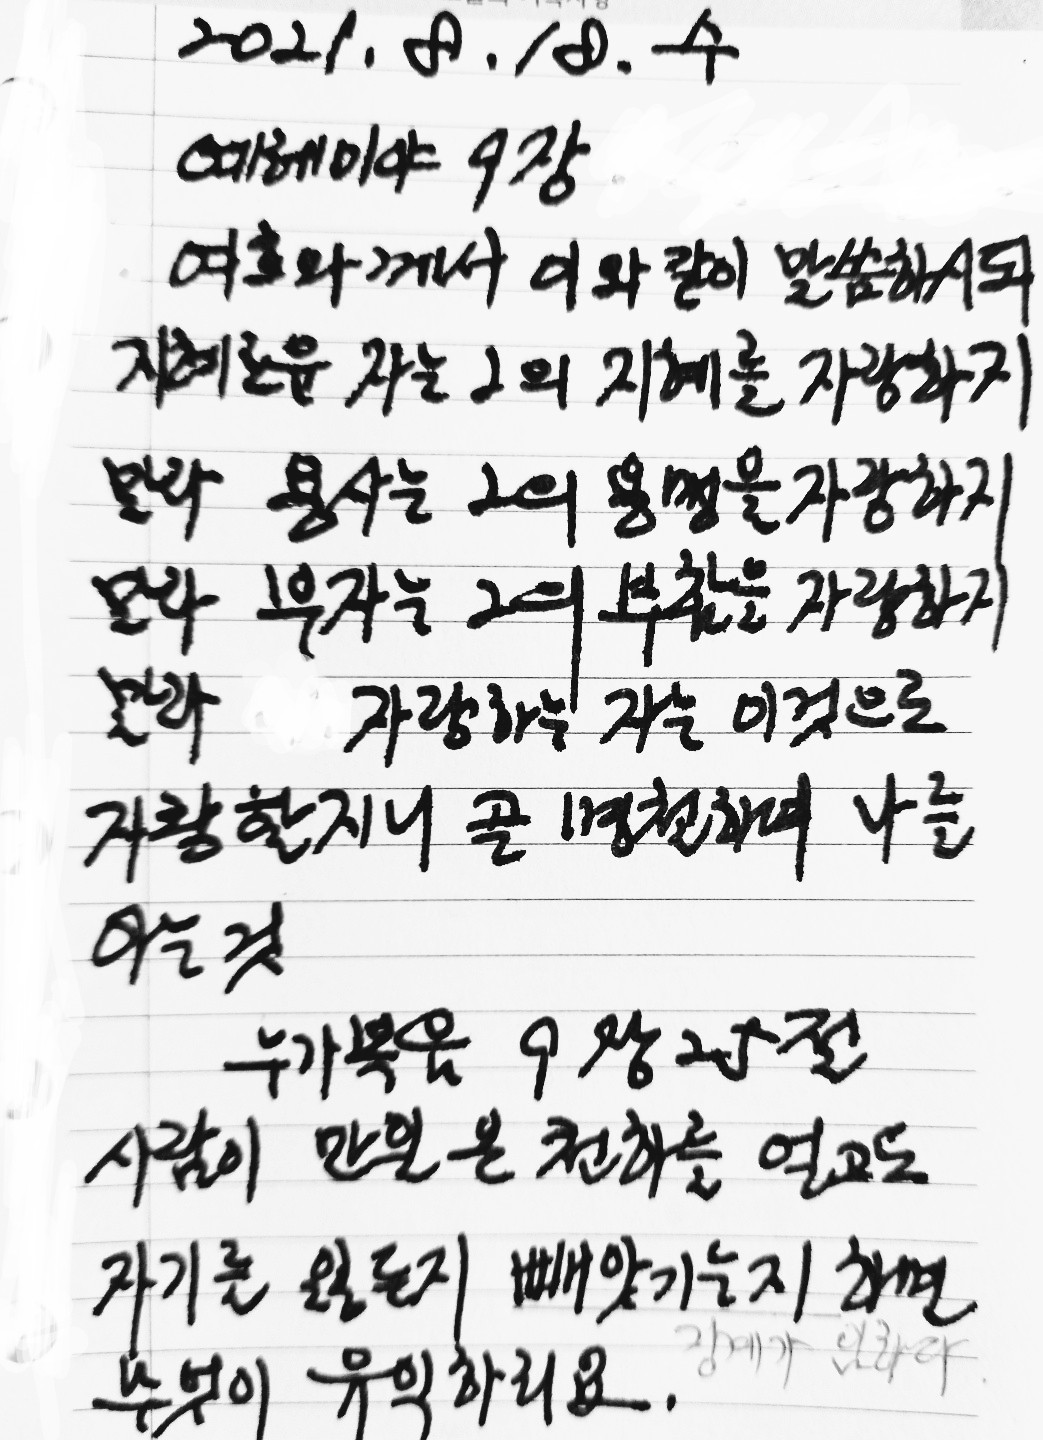 2021. 8. 18. 수
예레미야 9장
여호와께서 이와 같이 말씀하시되
지혜로운 자는 그의 지혜를 자랑하지
말라 용사는 그의 용맹을 자랑하지
말라 부자는 그의 부함을 자랑하지
말라 자랑하는 자는 이것으로
자랑할지니 곧 명철하여 나를
아는것
누가복음 9장 25절
사람이 만일 온 천하를 얻고도
자기를 잃든지 빼앗기는지 하면
무엇이 유익하리요.